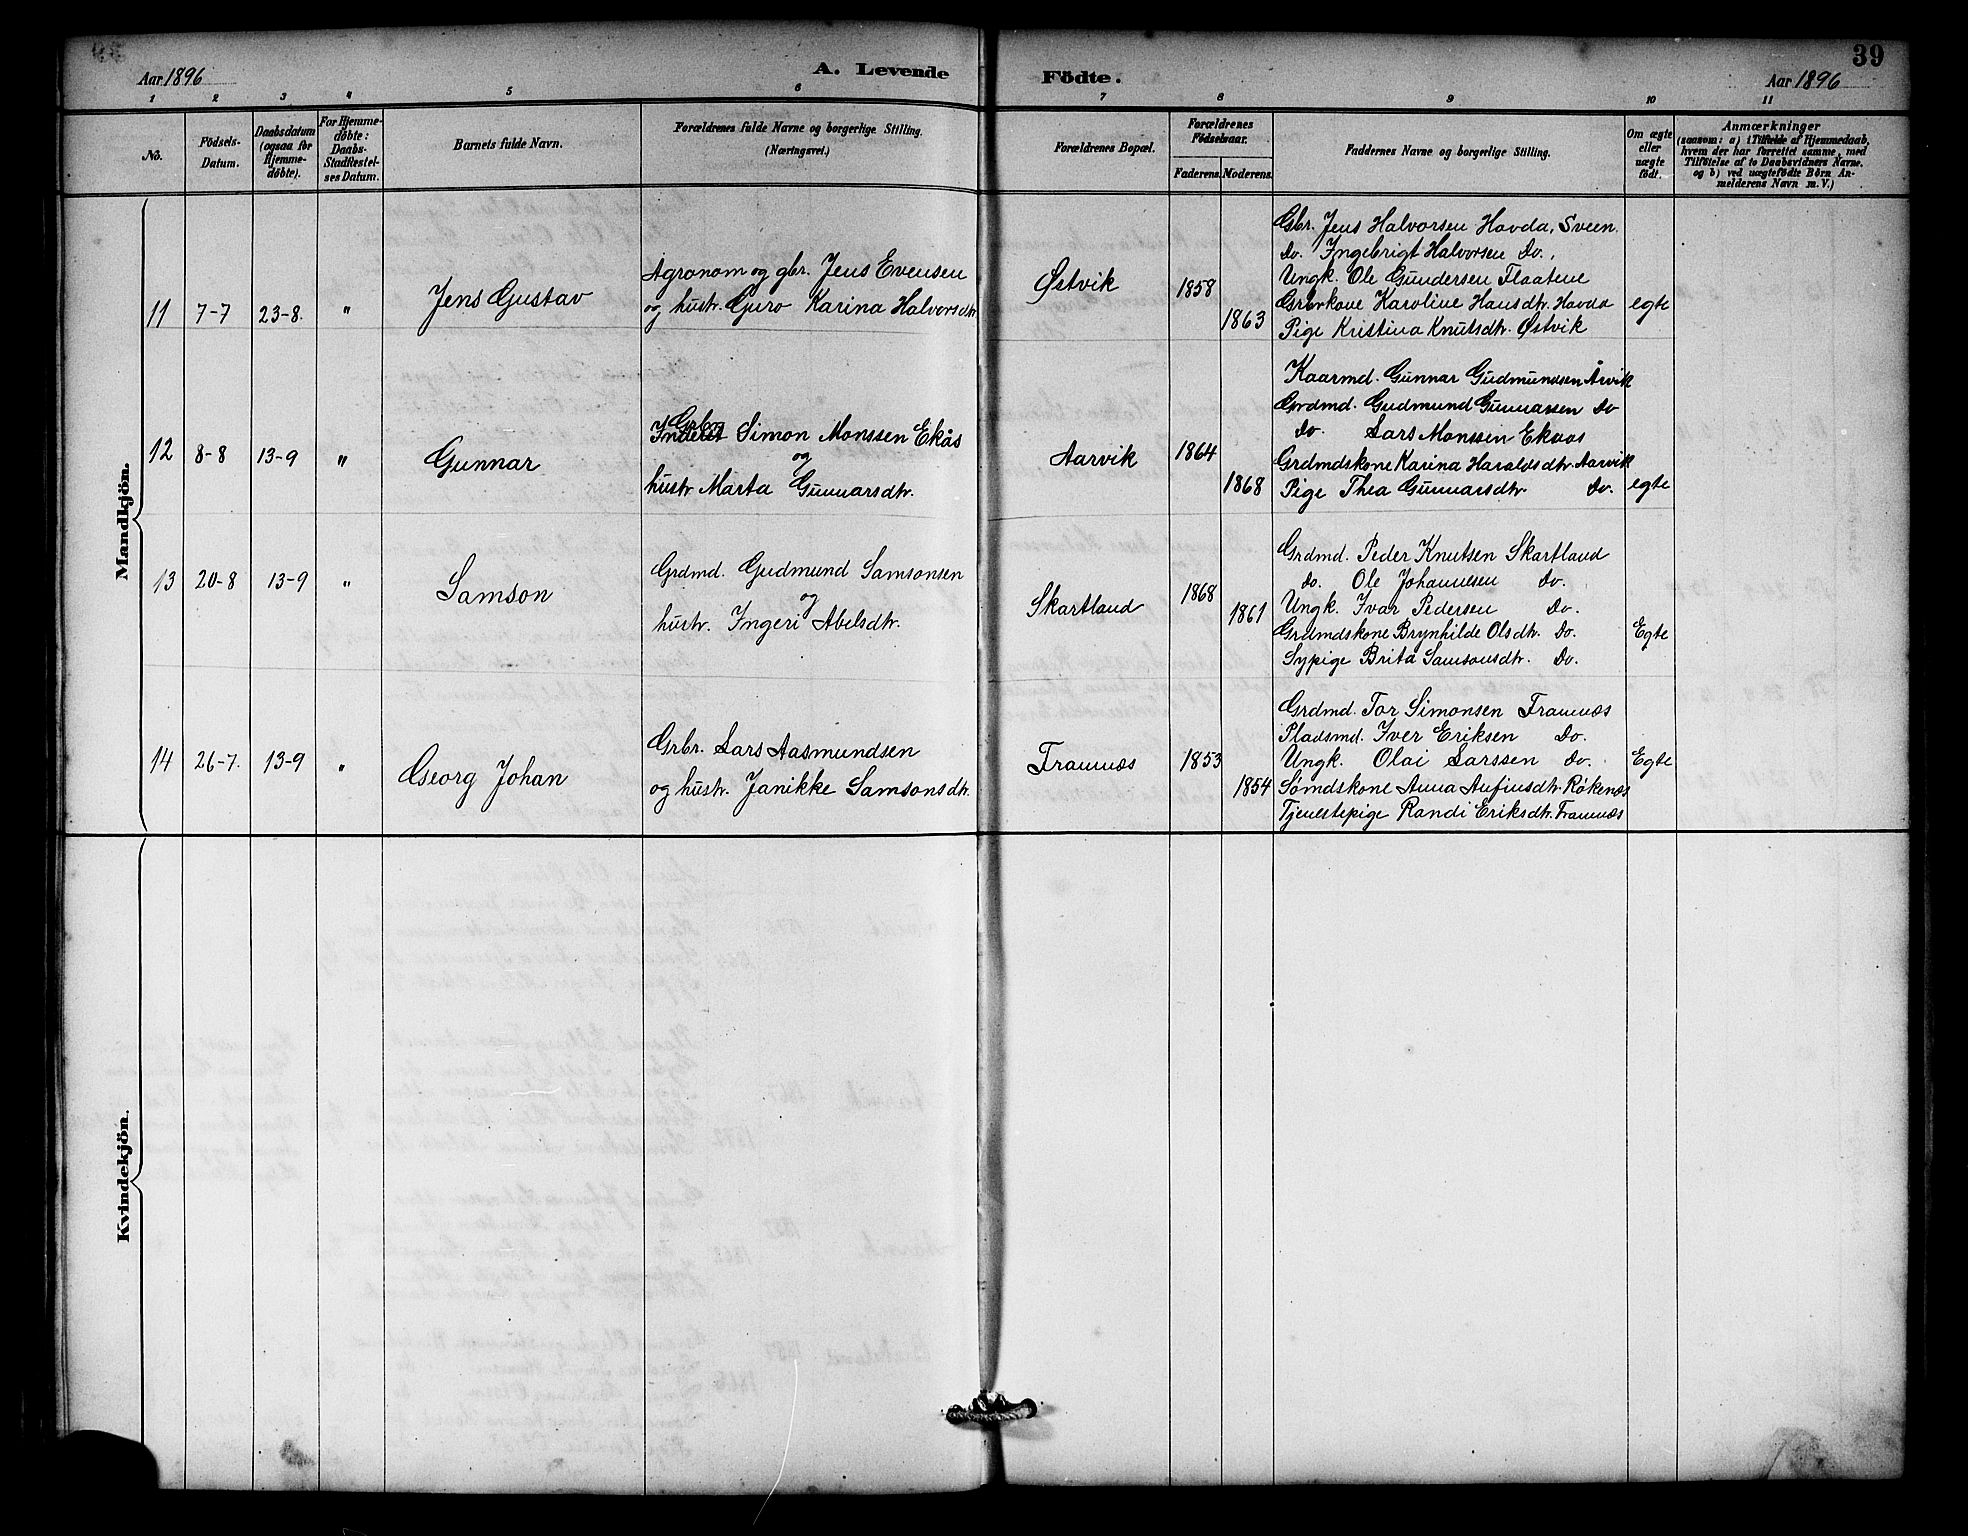 39
Aar 1896
A. Levende Födte.
Aar 1896
1 2 3 4 5 6 7 8 9 10 11
No.
Födsels-
Datum.
Daabsdatum
(ogsaa for
Hjemme-
döbte).
For Hjemme-
döbte:
Daabs-
Stadfæstel-
ses Datum.
Barnets fulde Navn.
Forældrenes fulde Navne og borgerlige Stilling.
(Næringsvei.)
Forældrenes Bopæl.
Forældrenes
Födselsaar.
Faderens. Moderens.
Faddernes Navne og borgerlige Stilling.
Om ægte
eller
uægte
födt.
Anmærkninger
(saasom: a) i Tilfælde af Hjemmedaab,
hvem der har forrettet samme, med
Tilföielse af to Daabsvidners Navne.
og b) ved uægtefödte Börn An-
melderens Navn m. V.)
Mandkjön.
11 7-7 23-8. " Jens Gustav
Agronom og gbr. Jens Evensen
og hustr. Guro Karina Halvorsdtr.
Østvik 1858 1863
Gbr. Jens Halvorsen Hovda, Sveen.
Do. Ingebrigt Halvorsen Do.,
Ungk. Ole Gundersen Flaatene
Grbrkone Karoline Hansdtr. Hovda
Pige Kristina Knutsdtr. Østvik
egte
12 8-8 13-9 " Gunnar
Grbr. Simon Monssen Ekås
og
hustr. Marta Gunnarsdtr.
Aarvik 1864 1868
Kaarmd. Gunnar Gudmundsen Årvik
Grdmd. Gudmund Gunnarsen Do
Do. Lars Monssen Ekaas
Grdmdskone Karina Haraldsdtr. Aarvik
Pige Thea Gunnarsdtr. Do.
egte
13 20-8 13-9 " Samson
Grdmd. Gudmund Samsonsen
og
hustr. Ingeri Abelsdtr.
Skartland 1868 1861
Grdmd. Peder Knutsen Skartland
Do. Ole Johannesen Do.
Ungk. Ivar Pedersen Do.
Grdmdskone Brynhilde Olsdtr. Do.
Sypige Brita Samsonsdtr. Do.
Egte
14 26-7. 13-9 " Georg Johan
Grbr. Lars Aasmundsen
og hustr. Janikke Samsonsdtr.
Framnæs 1853 1854
Grdmd. Tor Simonsen Framnæs
Pladsmd. Iver Eriksen Do.
Ungk. Olai Larssen Do.
Sømdskone Anna Anfinsdtr. Røkenæs
Tjenestepige Randi Eriksdtr. Framnæs
Egte
Kvindekjön.